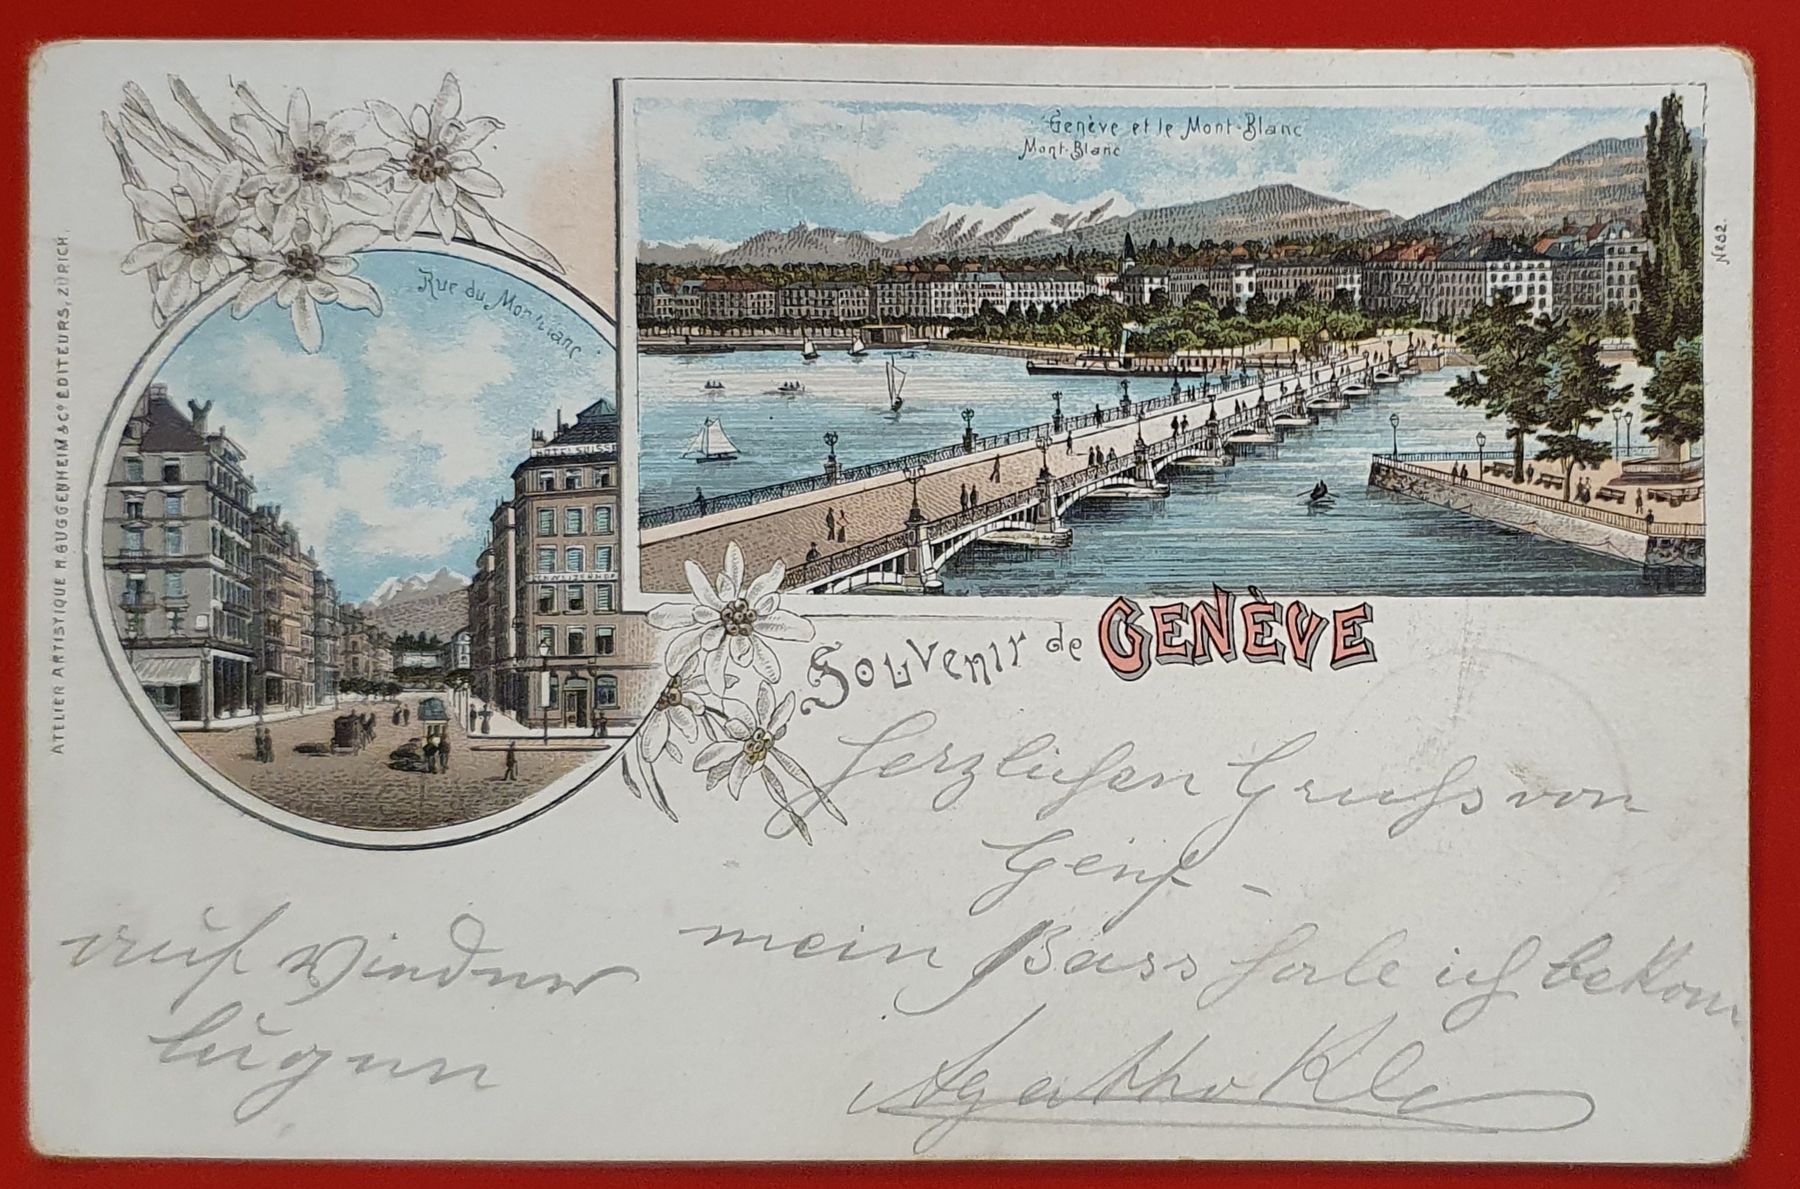 Genève et le Mont-Blanc
Mont-Blanc
No 52.
Rue du Montblanc
HOTEL SUISSE
SCHWEIZERHOF
ATELIER ARTISTIQUE H. GUGGENHEIM & Co EDITEURS, ZÜRICH.
Souvenir de GENÈVE
Herzlichen Gruss von
Genf -
mein Bass habe ich bekom
Agatha
auf Wieder